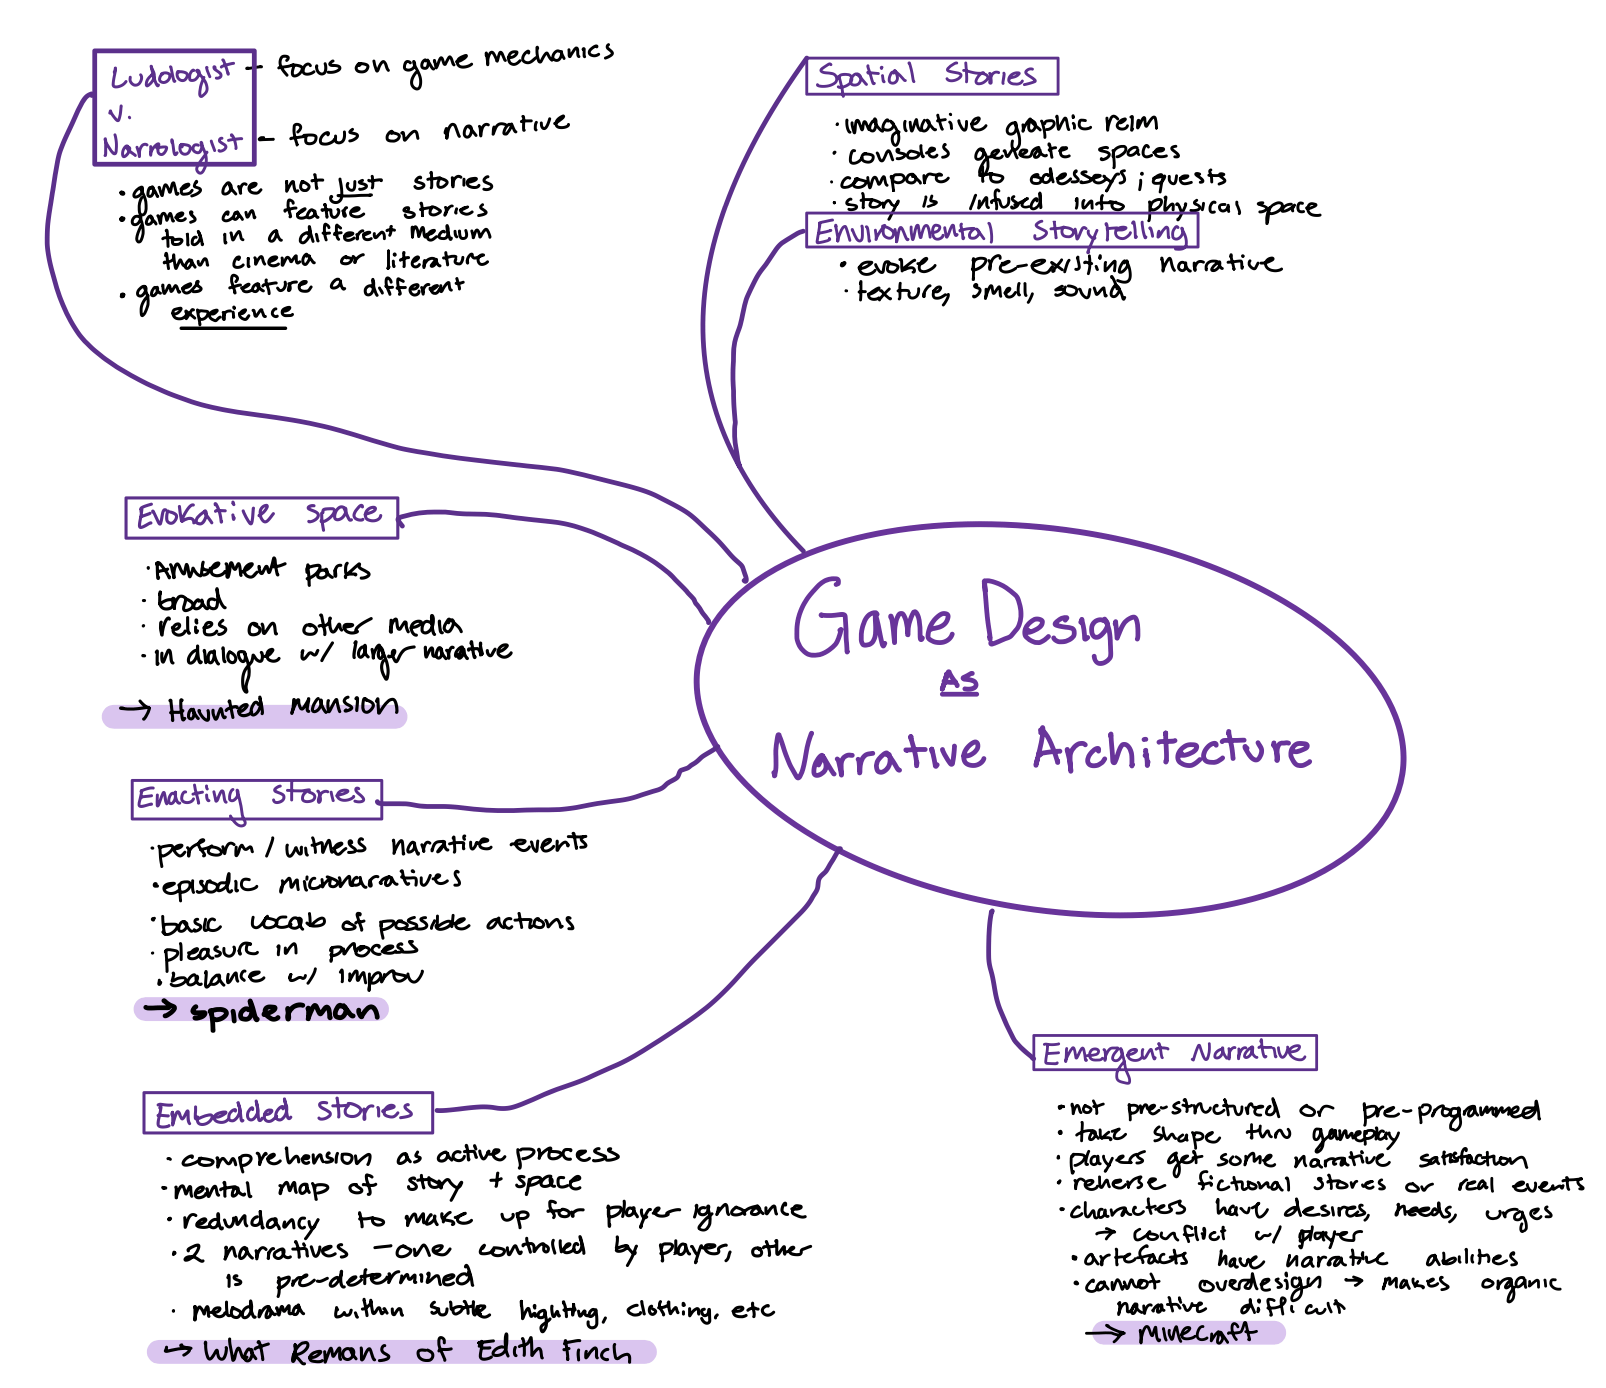 Ludologist – focus on game mechanics
v.
Narrologist – focus on narrative
• games are not just stories
• games can feature stories
told in a different medium
than cinema or literature
• games feature a different
experience
Spatial Stories
• imaginative graphic relm
• consoles geneate spaces
• compare to odesseys ; quests
• story is infused into physical space
Environmental Storytelling
• evoke pre-existing narrative
• texture, smell, sound
Evokative space
• Amusement parks
• broad
• relies on other media
• in dialogue w/ larger narative
→ Haunted Mansion
Game Design
As
Narrative Architecture
Enacting Stories
• perform / witness narrative events
• episodic micronaratives
• basic vocab of possible actions
• pleasure in process
• balance w/ improv
→ spiderman
Embedded Stories
• comprehension as active process
• mental map of story + space
• redundancy to make up for player ignorance
• 2 narratives – one controlled by player, other
is pre-determined
• melodrama within subtle highting, clothing, etc
→ What Remans of Edith Finch
Emergent Narrative
• not pre-structured or pre-programmed
• take shape thru gameplay
• players get some narrative satisfaction
• reherse fictional stores or real events
• characters have desires, needs, urges
→ conflict w/ player
• artefacts have narrative abilities
• cannot overdesign → makes organic
narative difficult
→ minecraft